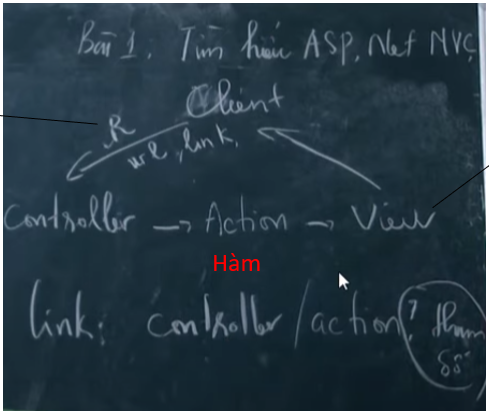 Bài 1. Tìm hiểu ASP.Net MVC
Client
R
url, link.
Controller → Action → View
Hàm
link: controller/action? tham
số